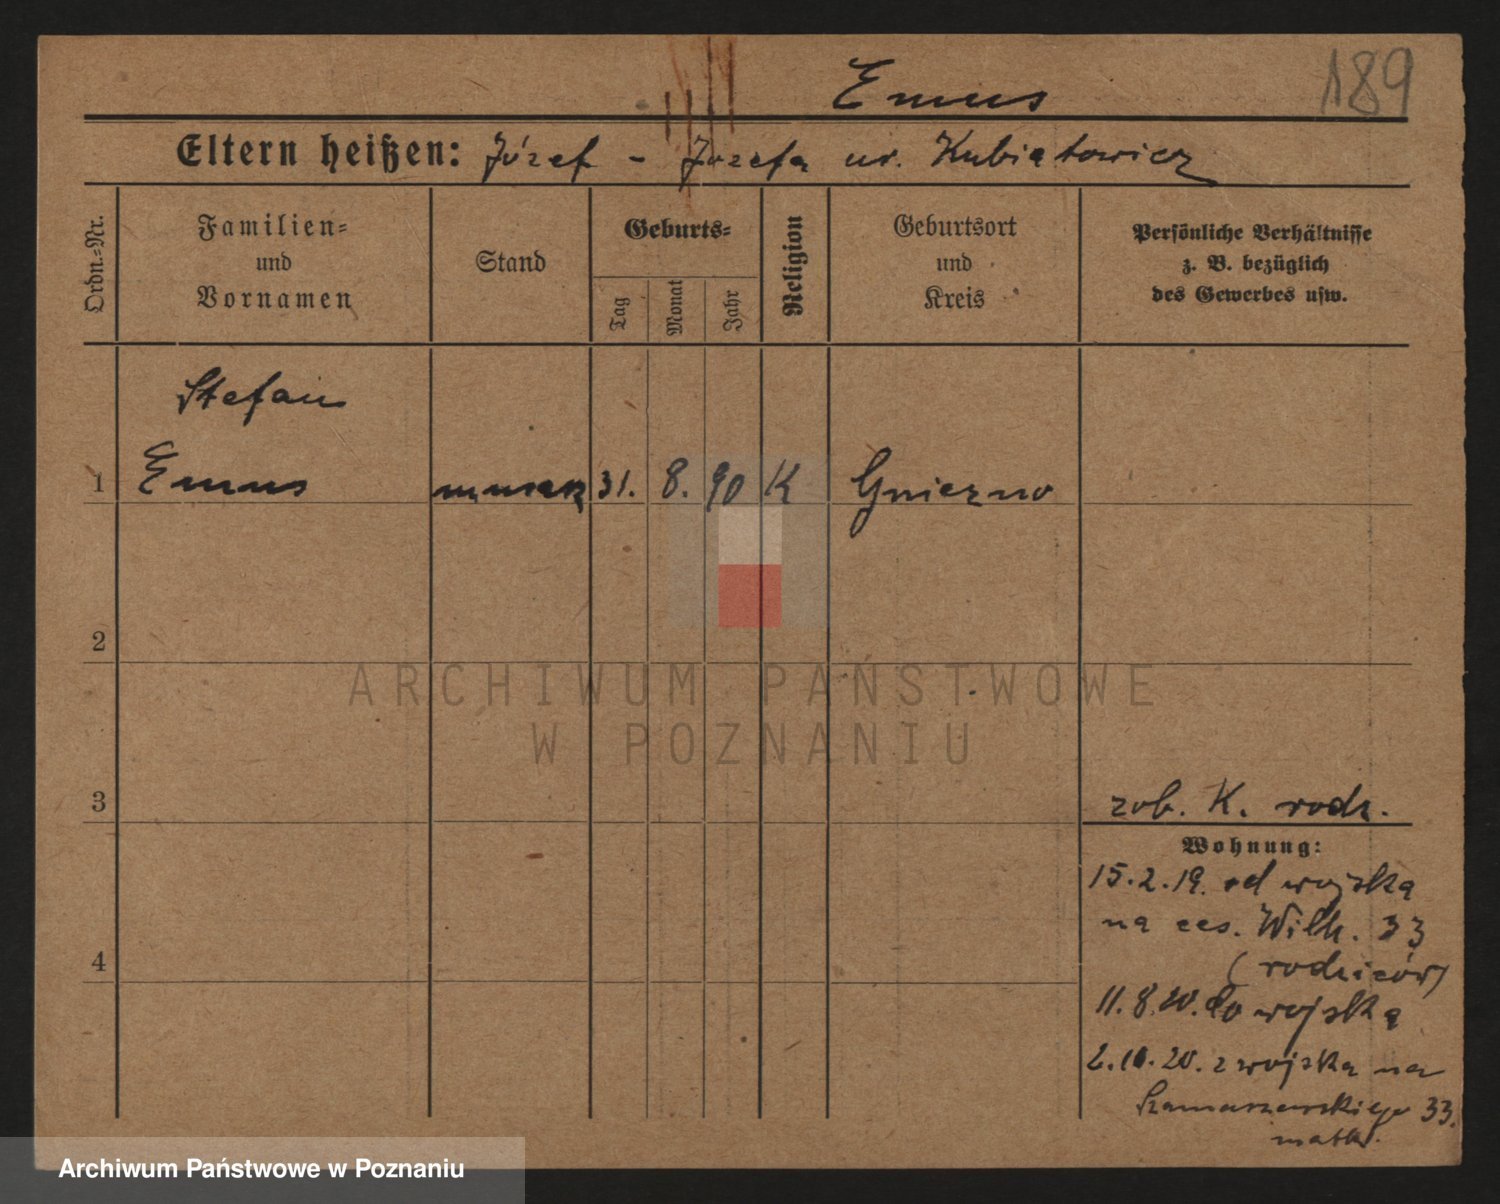 189
Emus
Eltern heißen: Józef - Jozefa ur. Kubiatowicz
Ordn.-Nr.
Familien-
und
Vornamen
Stand
Geburts-
Tag
Monat
Jahr
Religion
Geburtsort
und
Kreis
Persönliche Verhältnisse
z. B. bezüglich
des Gewerbes usw.
Stefan
1 Emus 31. 8. 90 K Gniezno
2
3
zob. K. rodz.
Wohnung:
15.2.19. od wojska
na ces. Wilh. 33
(rodziców)
4
11.8.20. do wojska
2.10.20. z wojska na
Szamarzewskiego 33.
matki.
ARCHIWUM PAŃSTWOWE
W POZNANIU
Archiwum Państwowe w Poznaniu